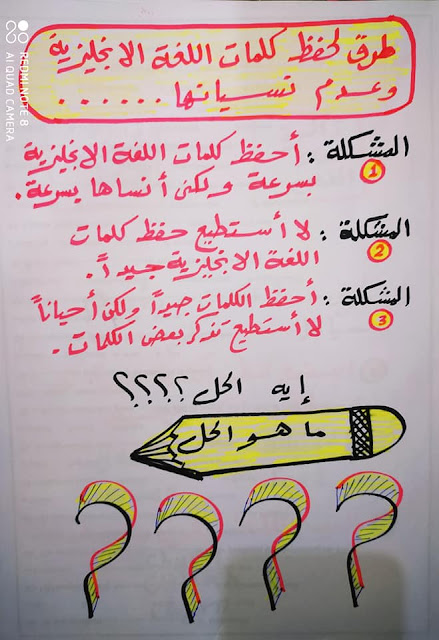 طرق لحفظ كلمات اللغة الانجليزية
وعدم نسيانها ......
المشكلة : أحفظ كلمات اللغة الانجليزية
1
بسرعة ولكن أنساها بسرعة .
المشكلة : لا أستطيع حفظ كلمات
2
اللغة الانجليزية جيداً .
المشكلة : أحفظ الكلمات جيداً ولكن أحياناً
3
لا أستطيع تذكر بعض الكلمات .
إيه الحل ؟؟؟؟
ما هو الحل
؟ ؟ ؟ ؟
REDMI NOTE 8
AI QUAD CAMERA